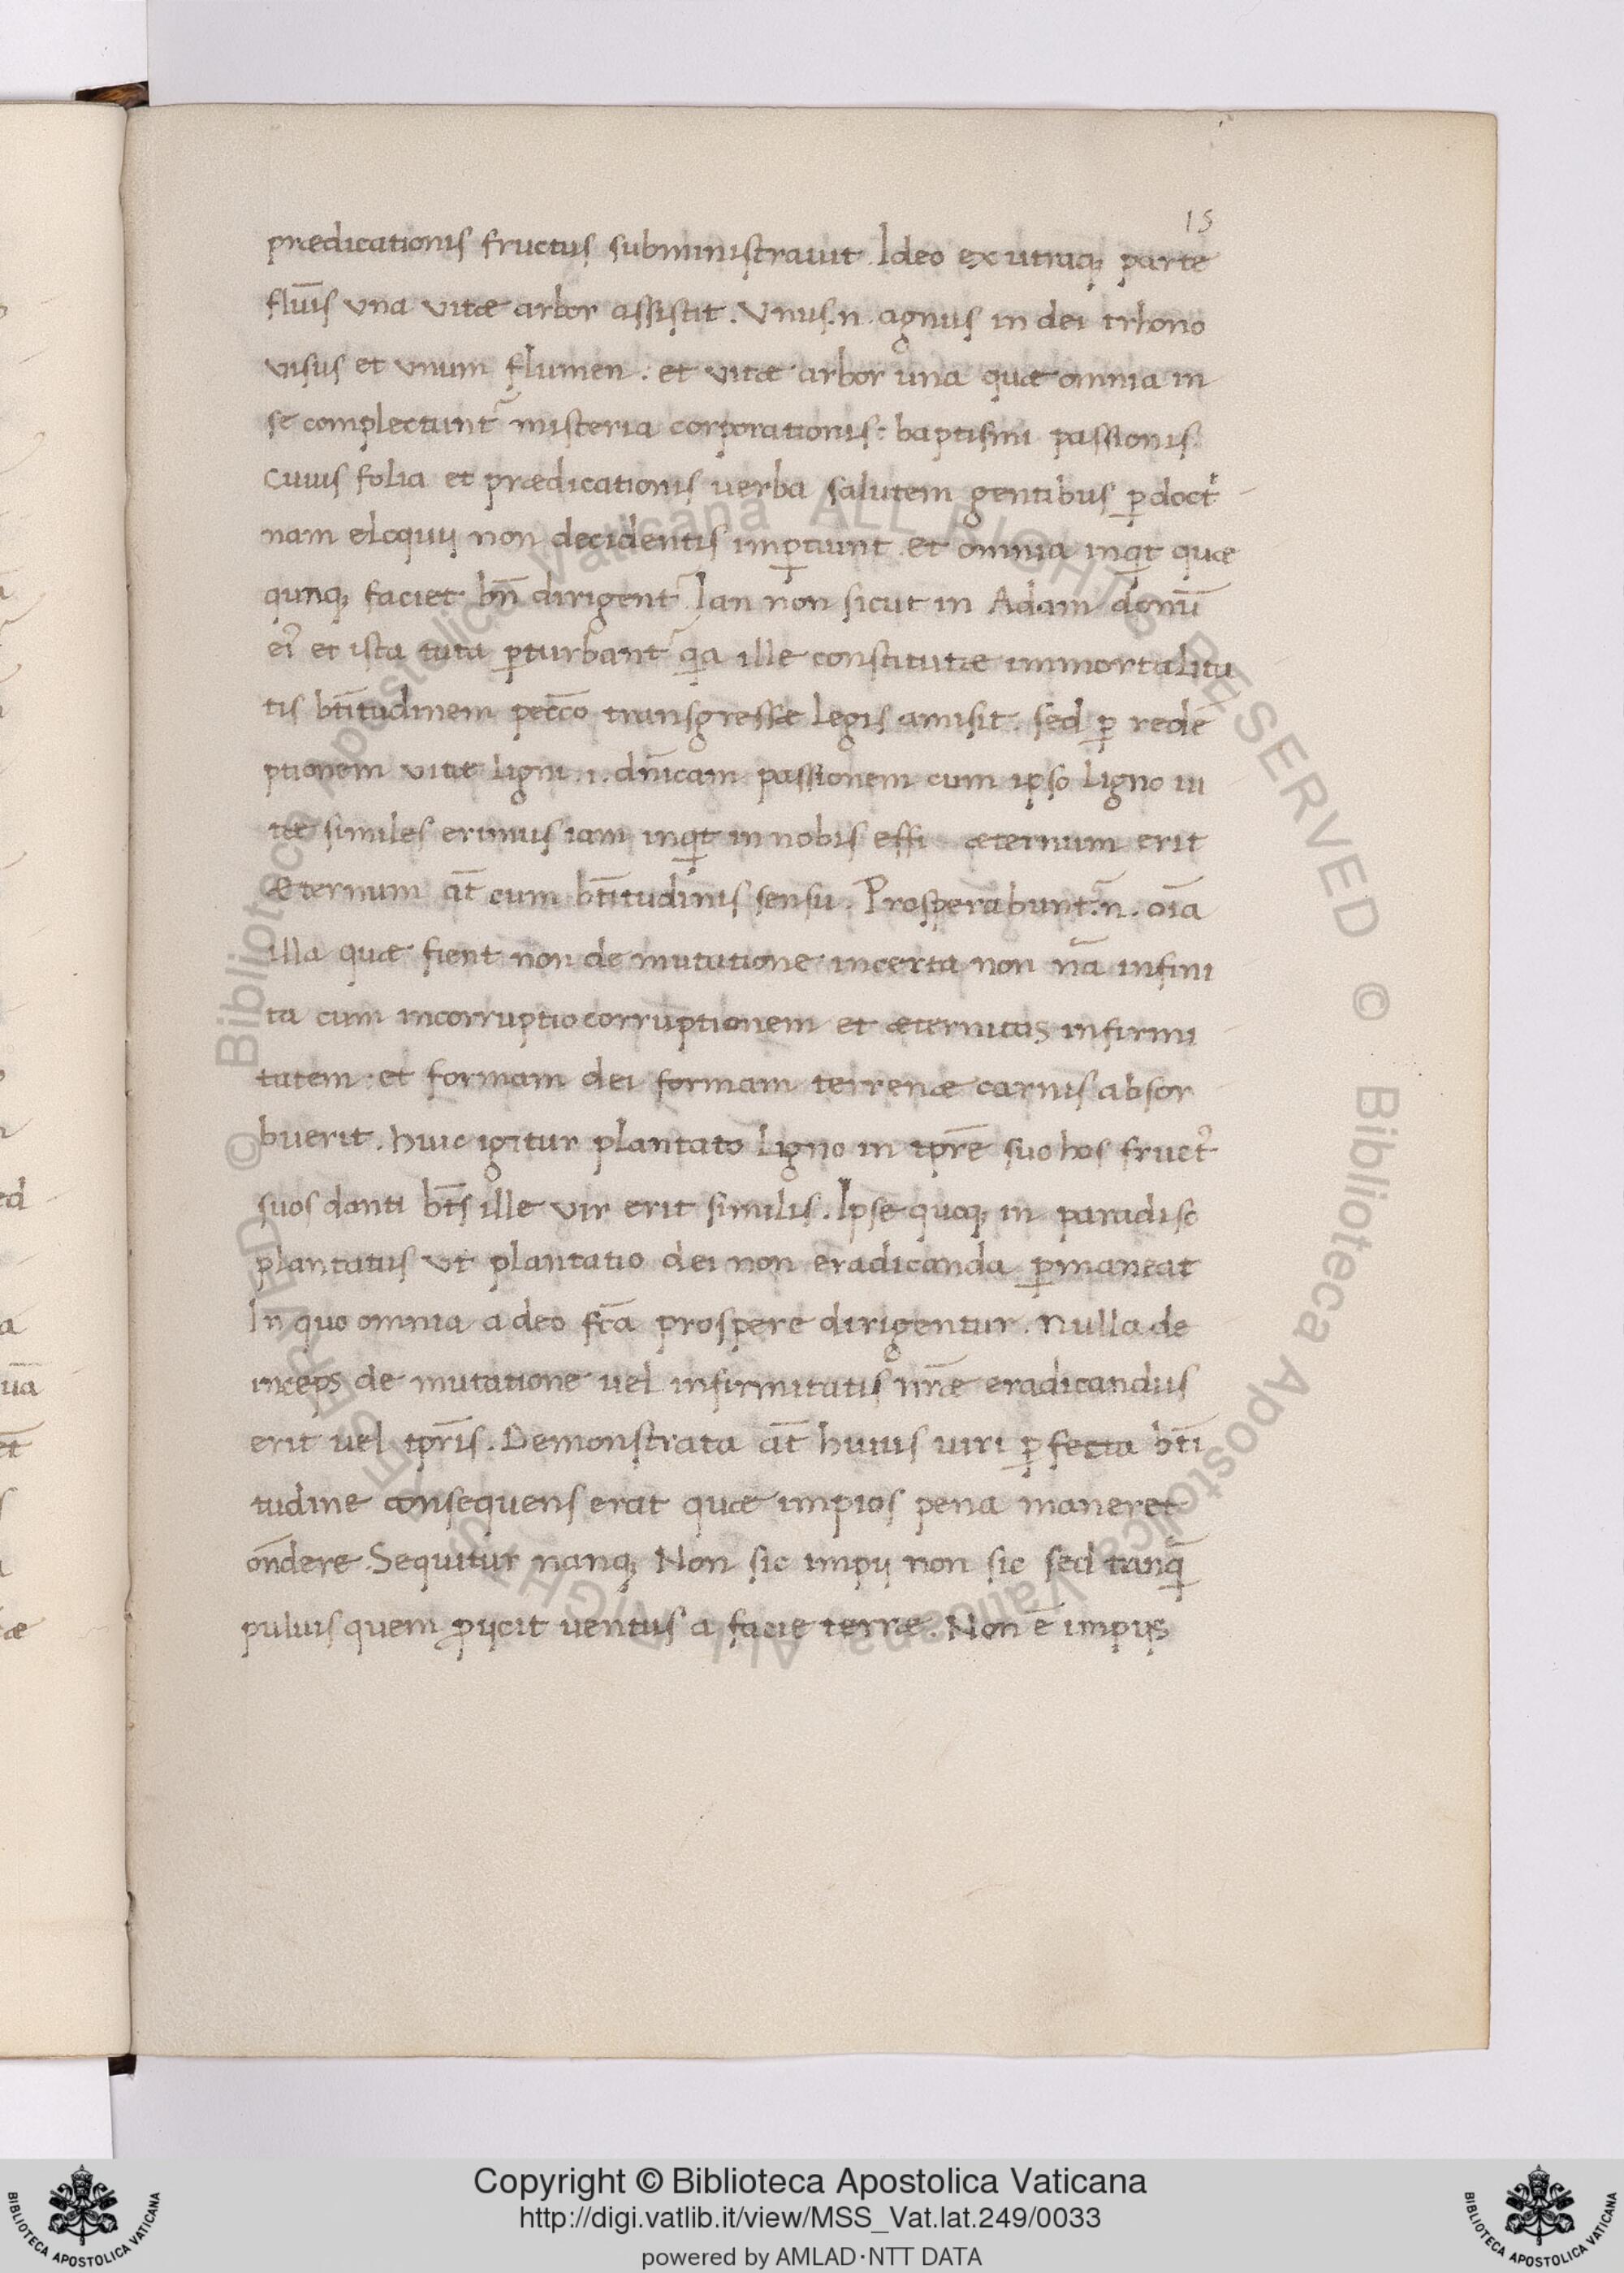 15
prædicationis fructus subministrauit. Ideo ex utraq; parte
fluīs vna vitæ arbor assistit. Vnus .n. agnus in dei trhono
visus et vnum flumen. et vitæ arbor una quæ omnia in
se complectunt᷑ misteria corporationis: baptismi passionis
Cuius folia et prædicationis uerba salutem gentibus ꝑ doctⁱ
nam eloquij non decidentis imꝑtiunt. et omnia inqͥt quæ
qunq; faciet bn̄ dirigent᷑ Ian non sicut in Adam donū
ei᷑ et ista tuta ꝑturbant᷑ qͥa ille constitutæ immortalita
tis bt̄itudinem pecc̄o transgressæ legis amisit. sed ꝑ redē
ptionem vitæ ligni .i. dn̄icam passionem cum ipso ligno ui
tæ similes erimus iam inqͥt in nobis effi æternum erit
Æternum āt cum bt̄itudinis sensu. Prosperabunt᷑ .n. oīa
illa quæ fient non de mutatione incerta non nā infini
ta cum incorruptio corruptionem et æternitas infirmi
tatem et formam dei formam terrenæ carnis absor
buerit. huic igitur plantato ligno in tpr̄e suo hos fruct᷑
suos danti bt̄s ille vir erit similis. Ipse quoq; in paradiso
plantatus vt plantatio dei non eradicanda ꝑmaneat
In quo omnia a deo fc̄a prospere dirigentur. Nulla de
inceps de mutatione uel infirmitatis nr̄æ eradicandus
erit uel tpr̄is. Demonstrata āt huius uiri ꝑfecta bt̄i
tudine consequens erat quæ impios pena maneret
on̄dere. Sequitur nanq; Non sic impij non sic sed tanq̄
puluis quem ꝓijcit uentus a facie terræ. Non ē impijs
ed
a
uā
et̄
æ
© Biblioteca Apostolica Vaticana ALL RIGHTS RESERVED © Biblioteca Apostolica Vaticana ALL RIGHTS RESERVED
Copyright © Biblioteca Apostolica Vaticana
http://digi.vatlib.it/view/MSS_Vat.lat.249/0033
powered by AMLAD·NTT DATA
BIBLIOTECA APOSTOLICA VATICANA
BIBLIOTECA APOSTOLICA VATICANA